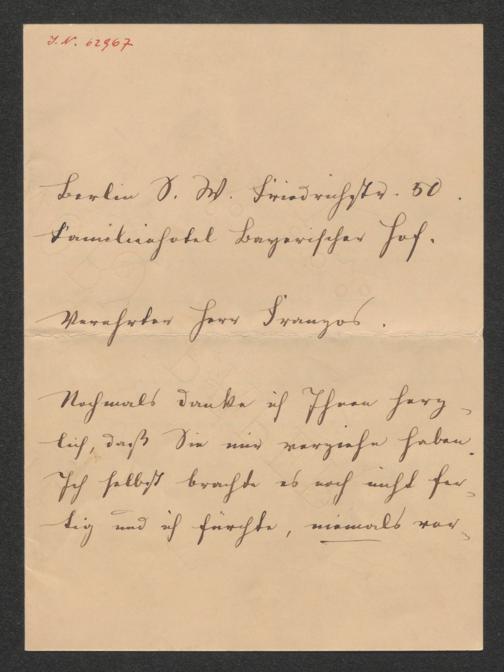 J.N. 62967
Berlin S. W. Friedrichstr. 50.
Familienhotel Bayerischer Hof.
Verehrter Herr Franzos.
Nochmals danke ich Ihnen herz-
lich, daß Sie mir verziehn haben.
Ich selbst brachte es noch nicht fer-
tig und ich fürchte, niemals wer-